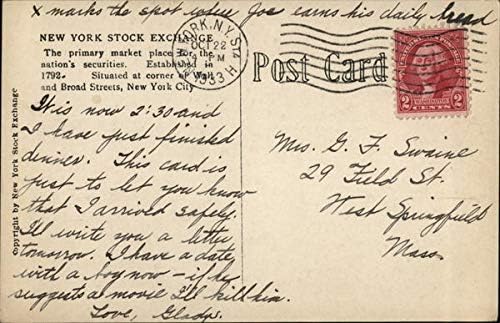 X marks the spot where Joe earns his daily bread
NEW YORK STOCK EXCHANGE
The primary market place for the
nation's securities. Established in
1792. Situated at corner of Wall
and Broad Streets, New York City
PARK, N.Y. STA H
OCT 22
PM
1933
Post Card
2 WASHINGTON 2
CENTS
Copyright by New York Stock Exchange
It is now 2:30 and
I have just finished
dinner. This card is
just to let you know
that I arrived safely.
I'll write you a letter
tomorrow. I have a date
with a boy now - if he
suggests a movie I'll kill him.
Love, Gladys.
Mrs. G. F. Swaine
29 Field St.
West Springfield
Mass.